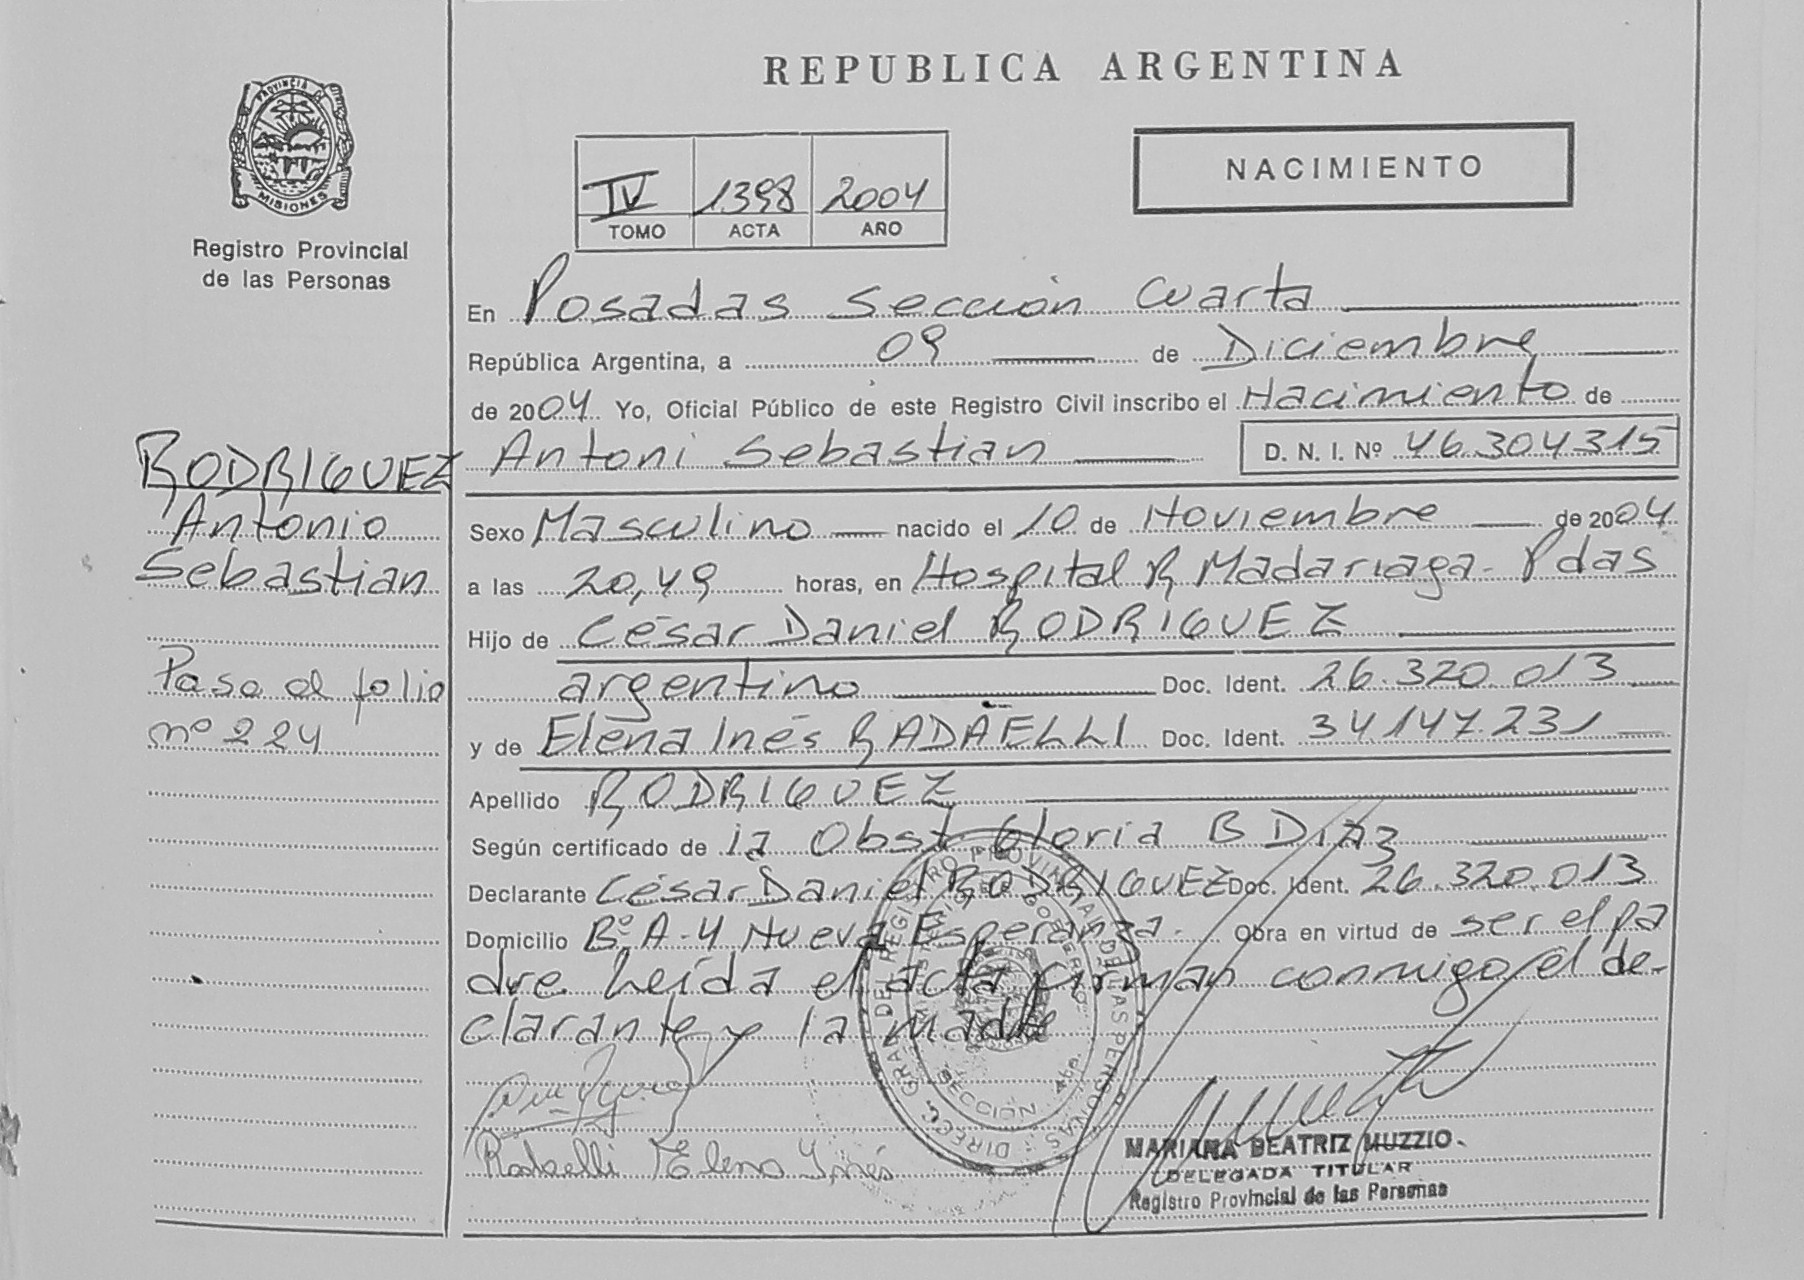 REPUBLICA ARGENTINA
PROVINCIA DE MISIONES
Registro Provincial
de las Personas
NACIMIENTO
IV 1398 2004
TOMO ACTA AÑO
En Posadas Sección Cuarta
República Argentina, a 09 de Diciembre
de 2004 Yo, Oficial Público de este Registro Civil inscribo el Nacimiento de
Antoni Sebastian D. N. I. Nº 46.304.315
RODRIGUEZ
Antonio
Sebastian
Paso al folio
nº 224
Sexo Masculino nacido el 10 de Noviembre de 2004
a las 20,49 horas, en Hospital R Madariaga - Pdas
Hijo de César Daniel RODRIGUEZ
argentino Doc. Ident. 26.320.013
y de Elena Inés RADAELLI Doc. Ident. 34147.231
Apellido RODRIGUEZ
Según certificado de la Obst Gloria B Diaz
Declarante César Daniel RODRIGUEZ Doc. Ident. 26.320.013
Domicilio Bº A-4 Nueva Esperanza - Obra en virtud de ser el pa
dre. Leída el acta firman conmigo el de-
clarante y la madre
Radaelli Elena Inés
DIRECC. GRAL. DEL REGISTRO PROVINCIAL DE LAS PERSONAS
SECCION 4ta
MARIANA BEATRIZ MUZZIO
DELEGADA TITULAR
Registro Provincial de las Personas